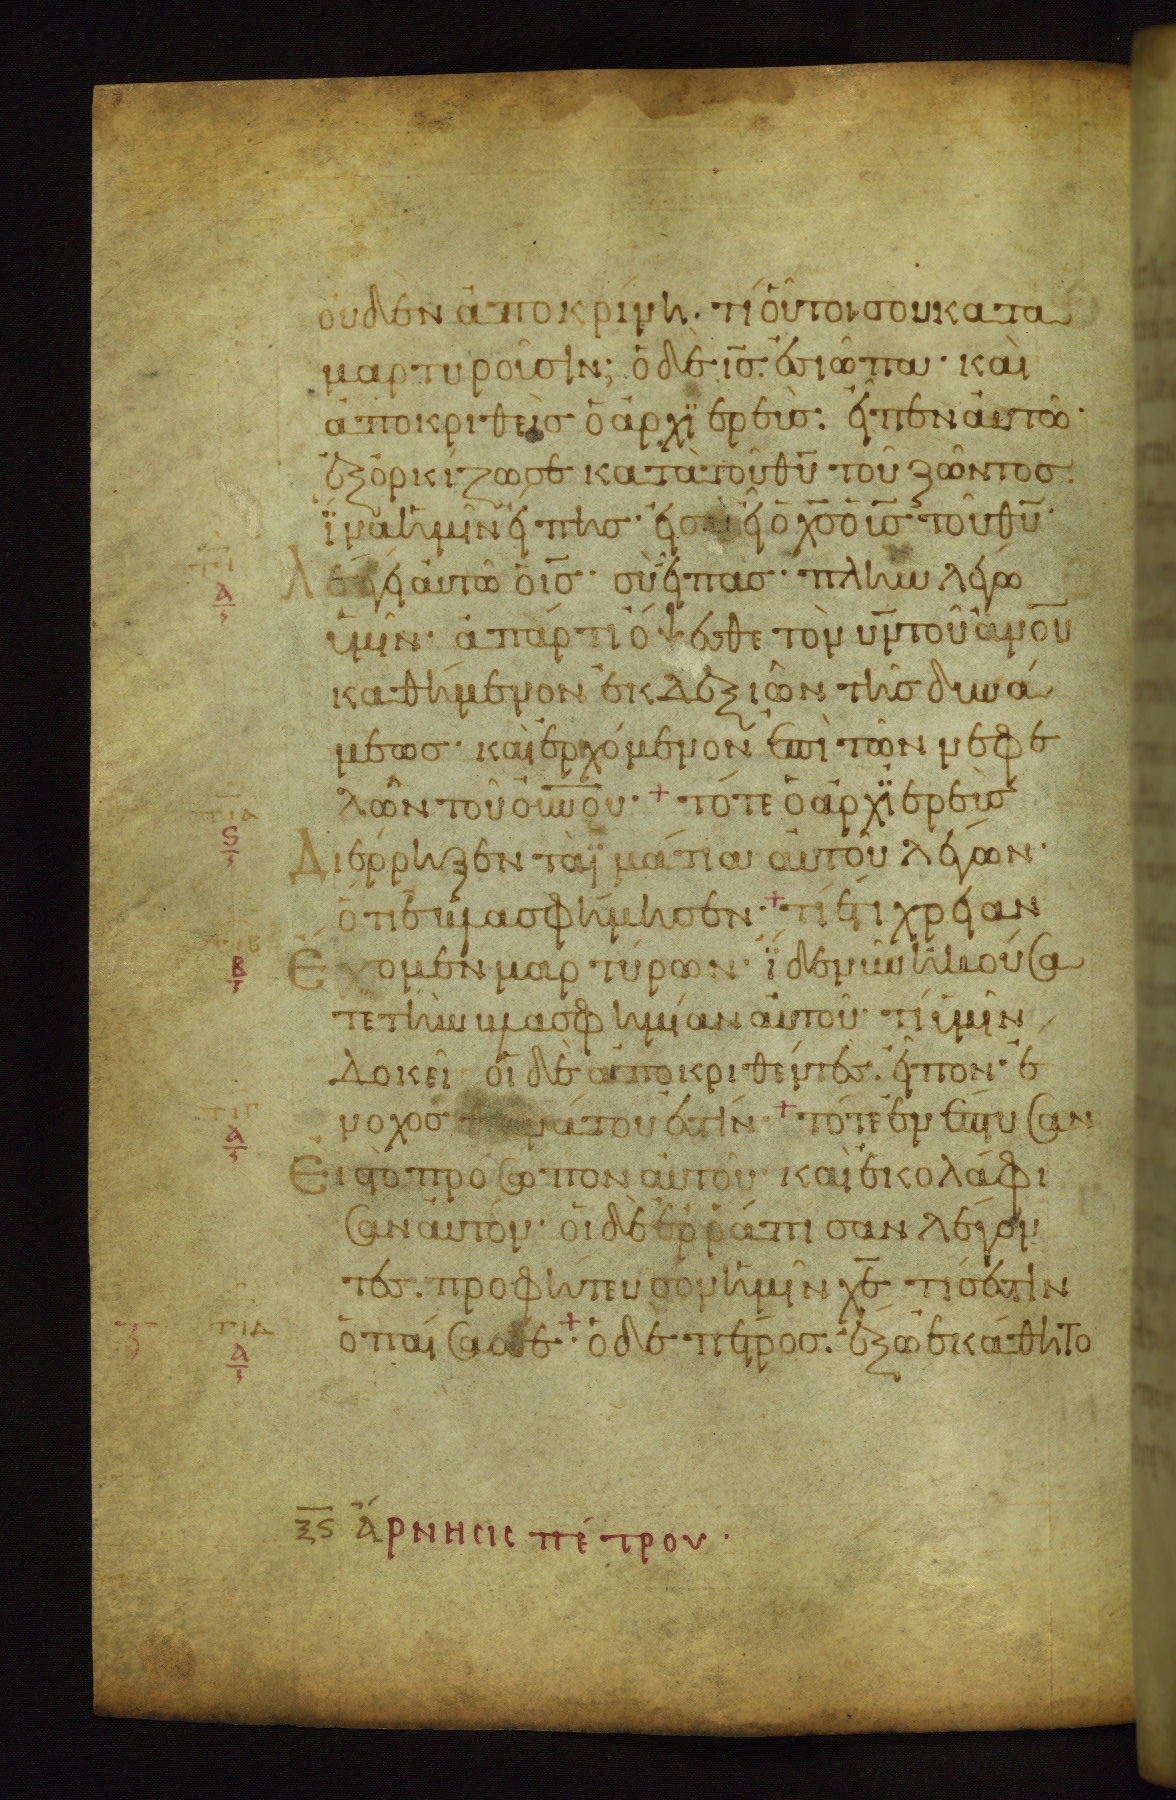 οὐδὲν ἀποκρίνη· τί οὗτοι σου κατα
μαρτυροῦσιν; ὁ δὲ ι̅ς̅ ἐσιώπα· καὶ
ἀποκριθεὶς ὁ ἀρχϊερεὺς· εἶπεν αὐτῶ·
ἐξορκίζω σε κατὰ τοῦ θ̅υ̅ τοῦ ζῶντος·
ἵνα ἡμῖν εἴπης· εἰ σὺ εἶ ὁ χ̅ς̅ ὁ υ̅ς̅ τοῦ θ̅υ̅·
τι
α
Λέγει αὐτῶ ὁ ι̅ς̅· σὺ εἶπας· πλὴν λέγω
ὑμῖν· ἀπάρτι ὄψεσθε τὸν υ̅ν̅ τοῦ α̅ν̅ο̅υ̅
καθήμενον ἐκ δεξιῶν τῆς δυνά
μεως· καὶ ἐρχόμενον ἐπὶ τῶν νεφε
τια
ς
λῶν τοῦ ο̅υ̅ν̅ο̅υ̅· + τότε ὁ ἀρχϊερεὺς
Διέρρηξεν τὰ ϊμάτια αὐτοῦ λέγων·
ὅτι ἐβλασφήμησεν· + τί ἔτι χρείαν
τιβ
β
Ἔχομεν μαρτύρων· ἴδε νῦν ἠκούσα
τε τὴν βλασφημίαν αὐτοῦ· τί ὑμῖν
δοκεῖ· οἱ δὲ ἀποκριθέντες· εἶπον· ἔ
τιγ
α
νοχος θανάτου ἐστὶν· + τότε ἐνέπτυσαν
Εἰς τὸ πρόσωπον αὐτοῦ καὶ ἐκολάφι
σαν αὐτόν· οἱ δὲ ἐρράπισαν λέγον
τες· προφήτευσον ἡμῖν χ̅ε̅ τίς ἐστιν
τιδ
α
ὁ παίσας σε· + ὁ δὲ πέτρος· ἔξω ἐκάθητο
ξ̅ς̅ ἄρνησις πέτρου·